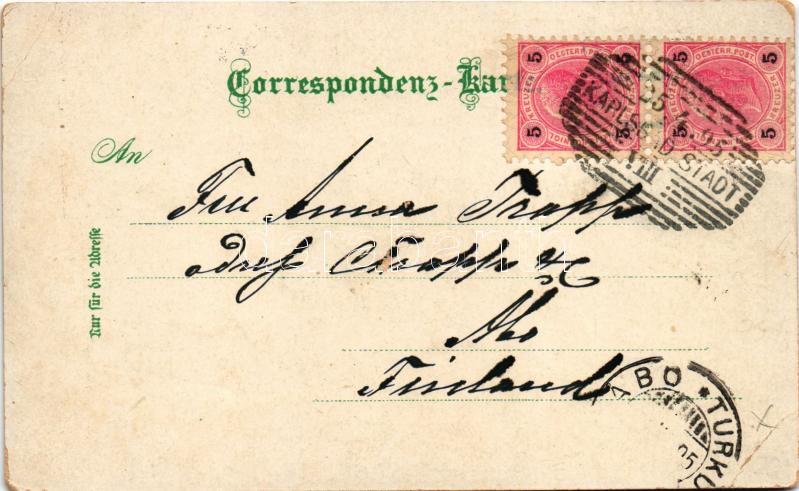 Correspondenz-Kar
5 OESTERR. POST. 5
5 KREUZER 5
5 OESTERR. POST. 5
5 KREUZER 5
KARLSBAD STADT
VIII
An
Fru Anna Trapp
adress Trapp & Co
Åbo
Finland
Nur für die Adresse
ÅBO * TURKU
95